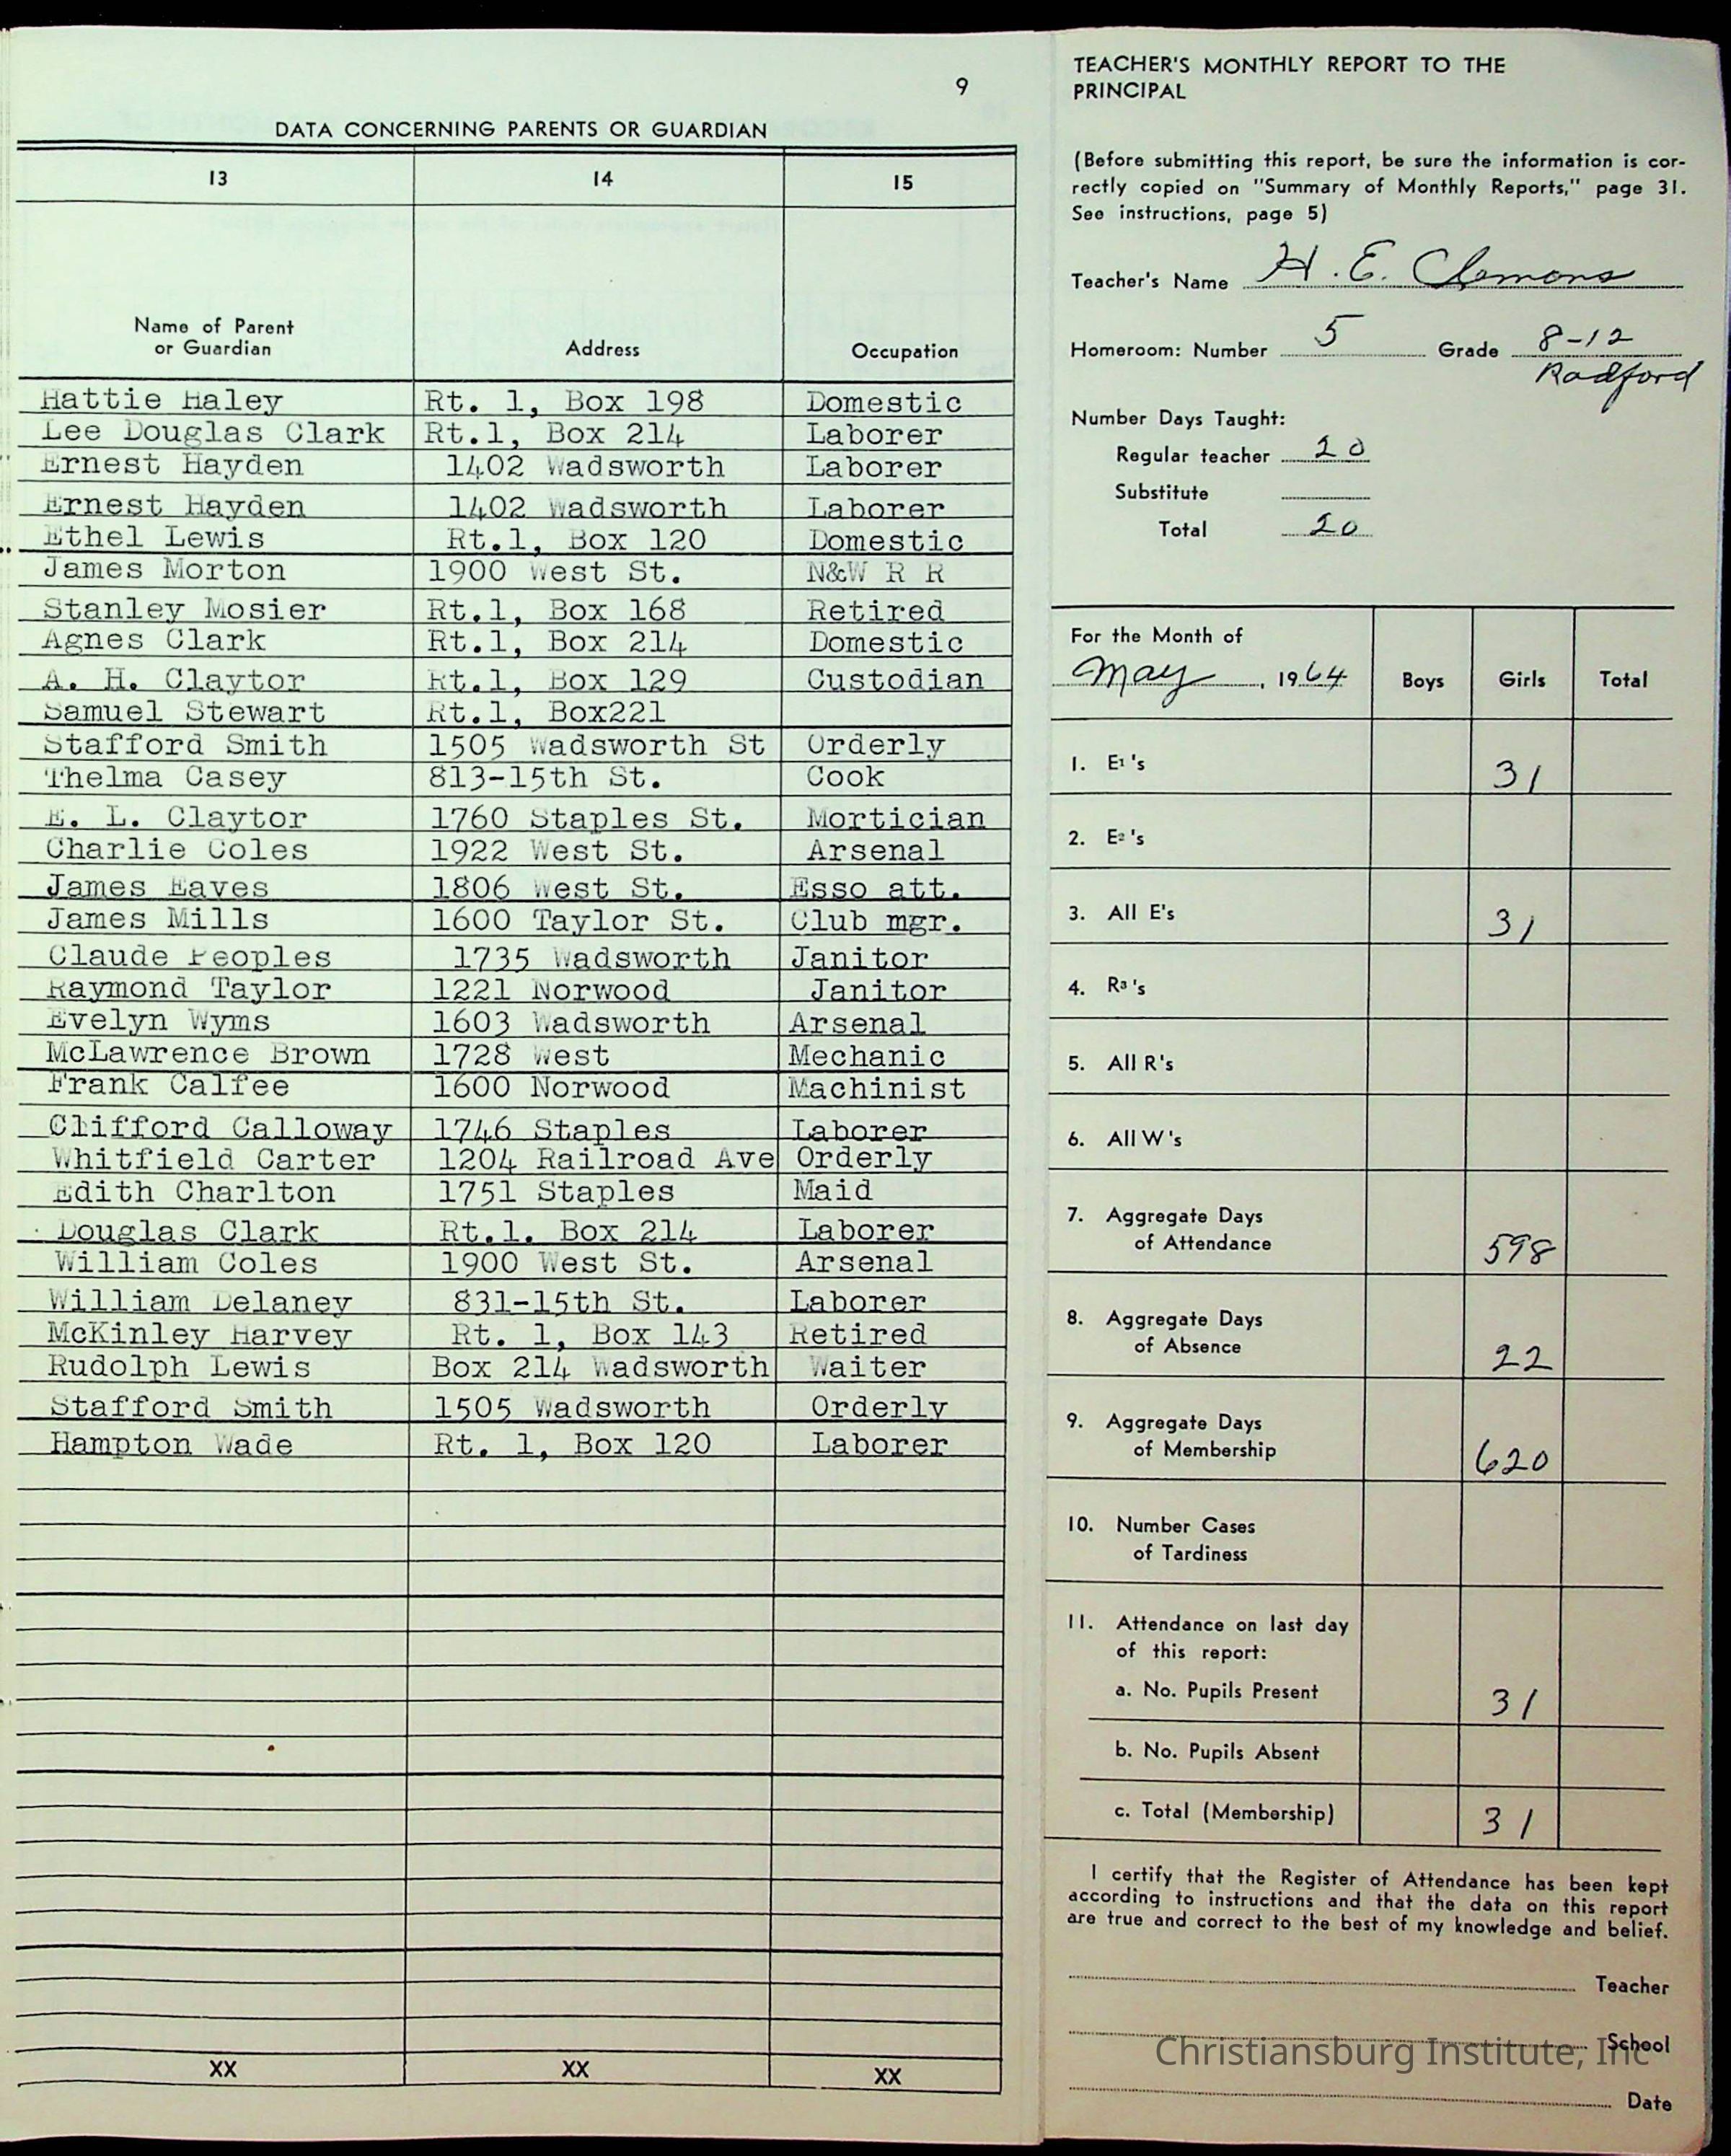 9
DATA CONCERNING PARENTS OR GUARDIAN
13 14 15
Name of Parent
or Guardian Address Occupation
Hattie Haley Rt. 1, Box 198 Domestic
Lee Douglas Clark Rt.1, Box 214 Laborer
Ernest Hayden 1402 Wadsworth Laborer
Ernest Hayden 1402 Wadsworth Laborer
Ethel Lewis Rt.1, Box 120 Domestic
James Morton 1900 West St. N&W R R
Stanley Mosier Rt.1, Box 168 Retired
Agnes Clark Rt.1, Box 214 Domestic
A. H. Claytor Rt.1, Box 129 Custodian
Samuel Stewart Rt.1, Box221
Stafford Smith 1505 Wadsworth St Orderly
Thelma Casey 813-15th St. Cook
E. L. Claytor 1760 Staples St. Mortician
Charlie Coles 1922 West St. Arsenal
James Eaves 1806 West St. Esso att.
James Mills 1600 Taylor St. Club mgr.
Claude Peoples 1735 Wadsworth Janitor
Raymond Taylor 1221 Norwood Janitor
Evelyn Wyms 1603 Wadsworth Arsenal
McLawrence Brown 1728 West Mechanic
Frank Calfee 1600 Norwood Machinist
Clifford Calloway 1746 Staples Laborer
Whitfield Carter 1204 Railroad Ave Orderly
Edith Charlton 1751 Staples Maid
Douglas Clark Rt.1. Box 214 Laborer
William Coles 1900 West St. Arsenal
William Delaney 831-15th St. Laborer
McKinley Harvey Rt. 1, Box 143 Retired
Rudolph Lewis Box 214 Wadsworth Waiter
Stafford Smith 1505 Wadsworth Orderly
Hampton Wade Rt. 1, Box 120 Laborer
XX XX XX
TEACHER'S MONTHLY REPORT TO THE
PRINCIPAL
(Before submitting this report, be sure the information is cor-
rectly copied on "Summary of Monthly Reports," page 31.
See instructions, page 5)
Teacher's Name H. E. Clemons
Homeroom: Number 5 Grade 8-12
Radford
Number Days Taught:
Regular teacher 20
Substitute
Total 20
For the Month of
May, 1964 Boys Girls Total
1. E1's 31
2. E2's
3. All E's 31
4. R3's
5. All R's
6. All W's
7. Aggregate Days
of Attendance 598
8. Aggregate Days
of Absence 22
9. Aggregate Days
of Membership 620
10. Number Cases
of Tardiness
11. Attendance on last day
of this report:
a. No. Pupils Present 31
b. No. Pupils Absent
c. Total (Membership) 31
I certify that the Register of Attendance has been kept
according to instructions and that the data on this report
are true and correct to the best of my knowledge and belief.
Teacher
School
Christiansburg Institute, Inc
Date